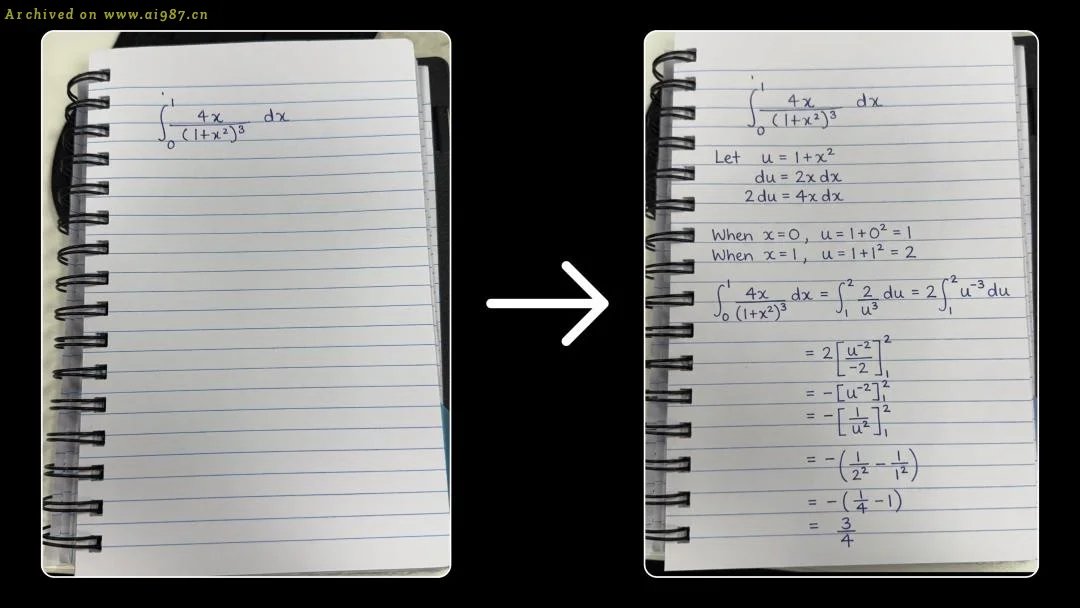 Archived on www.ai987.cn
∫₀¹ 4x/(1+x²)³ dx
∫₀¹ 4x/(1+x²)³ dx
Let u = 1+x²
du = 2x dx
2 du = 4x dx
When x=0, u = 1+0² = 1
When x=1, u = 1+1² = 2
∫₀¹ 4x/(1+x²)³ dx = ∫₁² 2/u³ du = 2∫₁² u⁻³ du
= 2[u⁻²/-2]₁²
= -[u⁻²]₁²
= -[1/u²]₁²
= -(1/2² - 1/1²)
= -(1/4 - 1)
= 3/4